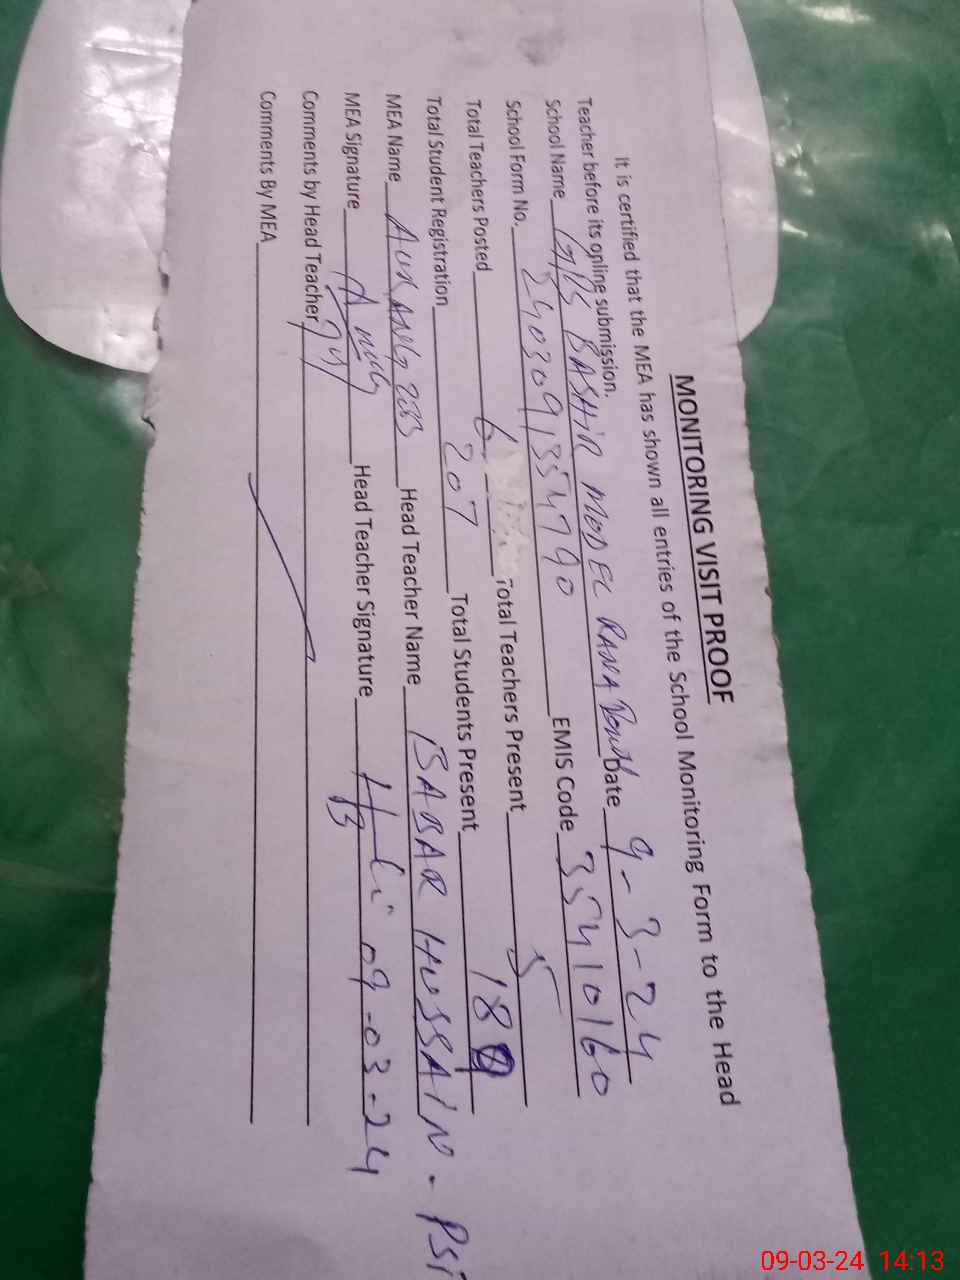 MONITORING VISIT PROOF
It is certified that the MEA has shown all entries of the School Monitoring Form to the Head
Teacher before its online submission.
School Name BASHIR MODEL RANA Date 9-3-24
School Form No. EMIS Code 35410160
Total Teachers Posted 6 Total Teachers Present 5
Total Student Registration 207 Total Students Present
MEA Name AURANGZEB Head Teacher Name BABAR HUSSAIN - PST
MEA Signature Head Teacher Signature 09-03-24
Comments by Head Teacher
Comments By MEA
09-03-24 14:13